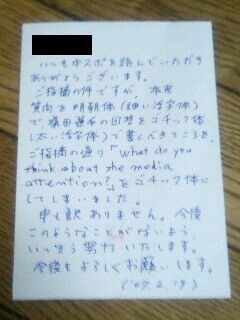 いつも中スポを読んでいただき
ありがとうございます。
ご指摘の件ですが、本来
質問を明朝体(細い活字体)
で、桑田選手の回答をゴチック体
(太い活字体)で書くべきところを、
ご指摘の通り「What do you
think about the media
attention?」をゴチック体に
してしまいました。
申し訳ありません。今後
このようなことがないよう
いっそう努力いたします。
今後もよろしくお願いします。